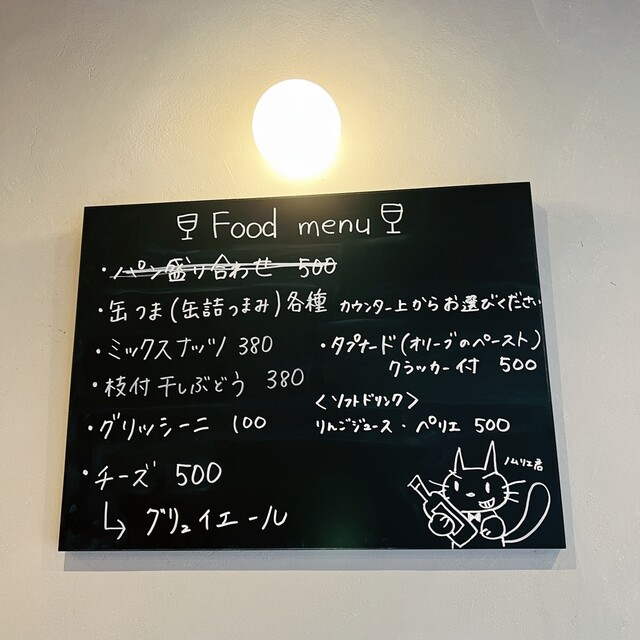 Food menu
・パン盛り合わせ 500
・缶つま(缶詰つまみ)各種 カウンター上からお選びください
・ミックスナッツ 380
・枝付干しぶどう 380
・グリッシーニ 100
・チーズ 500
↳ グリュイエール
・タプナード(オリーブのペースト)
クラッカー付 500
<ソフトドリンク>
りんごジュース・ペリエ 500
ノムリエ君